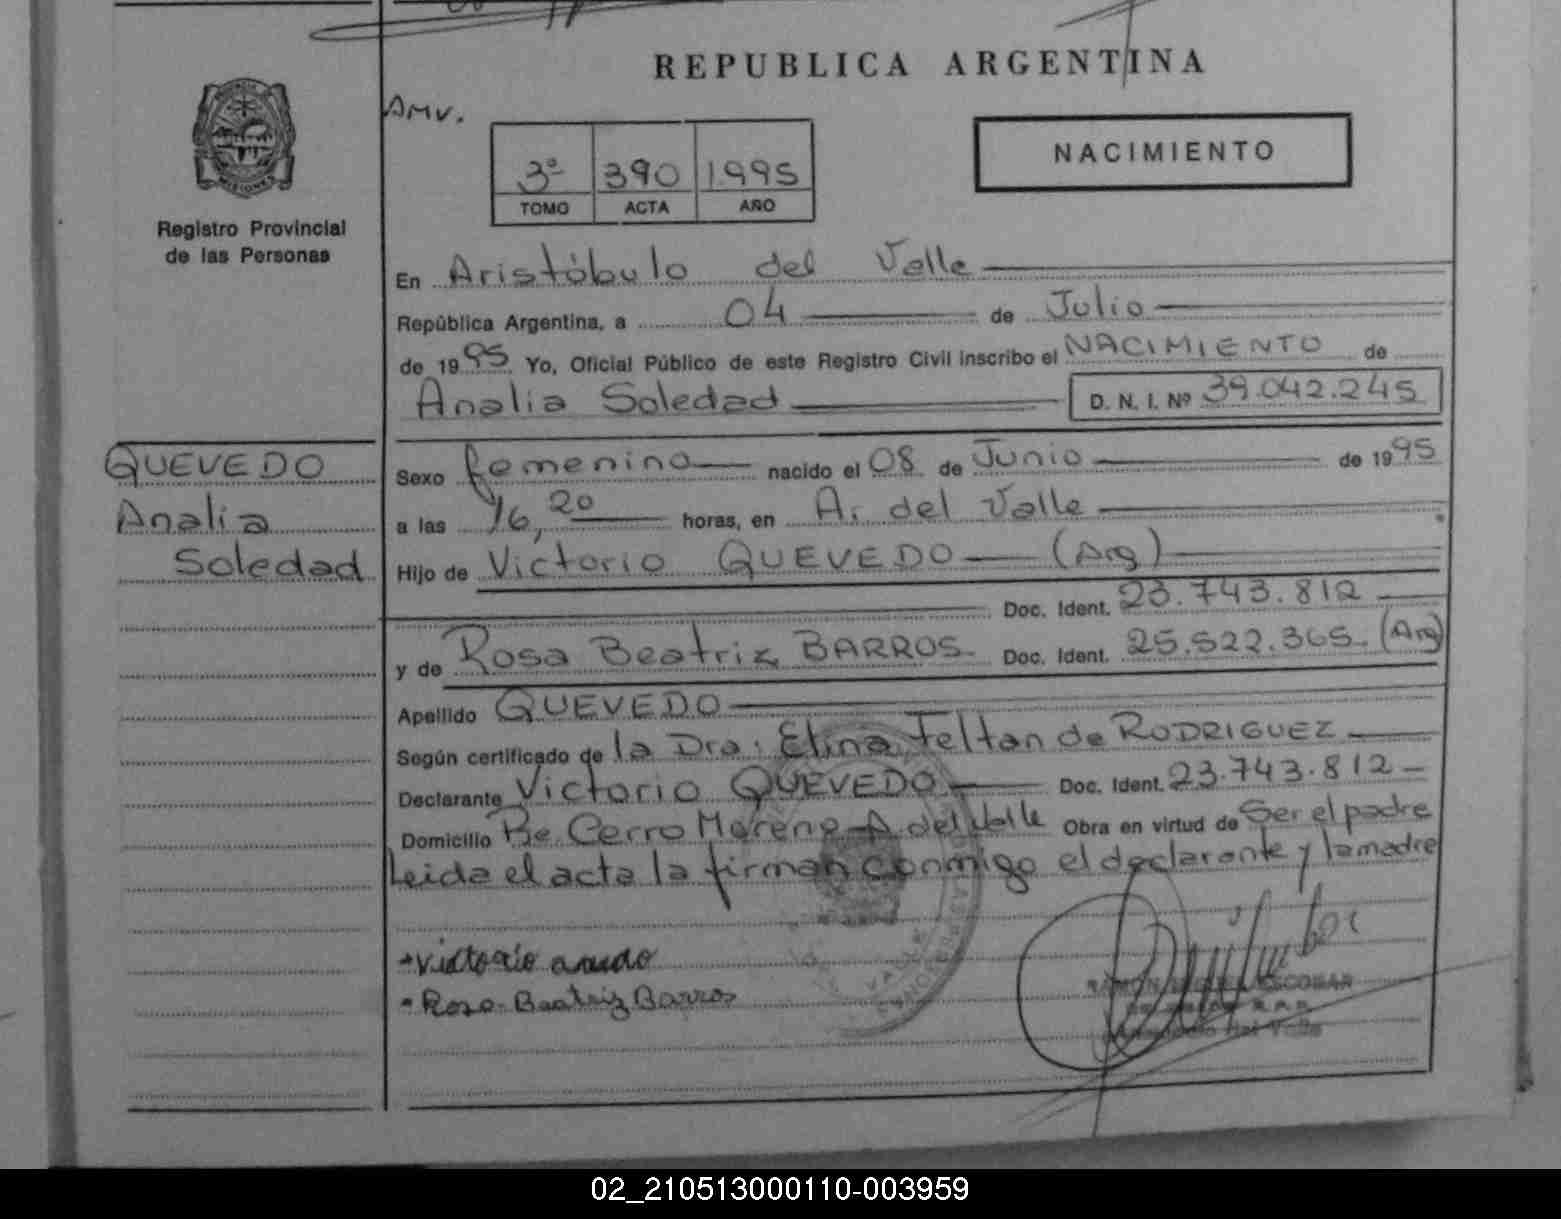 REPUBLICA ARGENTINA
AMV.
MISIONES
Registro Provincial
de las Personas
3º 390 1.995
TOMO ACTA AÑO
NACIMIENTO
En Aristóbulo del Valle
República Argentina, a 04 de Julio
de 1995 Yo, Oficial Público de este Registro Civil inscribo el NACIMIENTO de
Analia Soledad D. N. I. Nº 39.042.245
QUEVEDO
Analia
Soledad
Sexo femenino nacido el 08 de Junio de 1995
a las 16,20 horas, en A. del Valle
Hijo de Victorio QUEVEDO (Arg)
Doc. Ident. 23.743.812
y de Rosa Beatriz BARROS Doc. Ident. 25.522.365. (Arg)
Apellido QUEVEDO
Según certificado de la Dra: Elina Feltan de RODRIGUEZ
Declarante Victorio QUEVEDO Doc. Ident. 23.743.812
Domicilio Be. Cerro Moreno A del Valle Obra en virtud de Ser el padre
Leida el acta la firman conmigo el declarante y la madre
Victorio
Rosa Beatriz Barros
VALLE
ESCOBAR
02_210513000110-003959